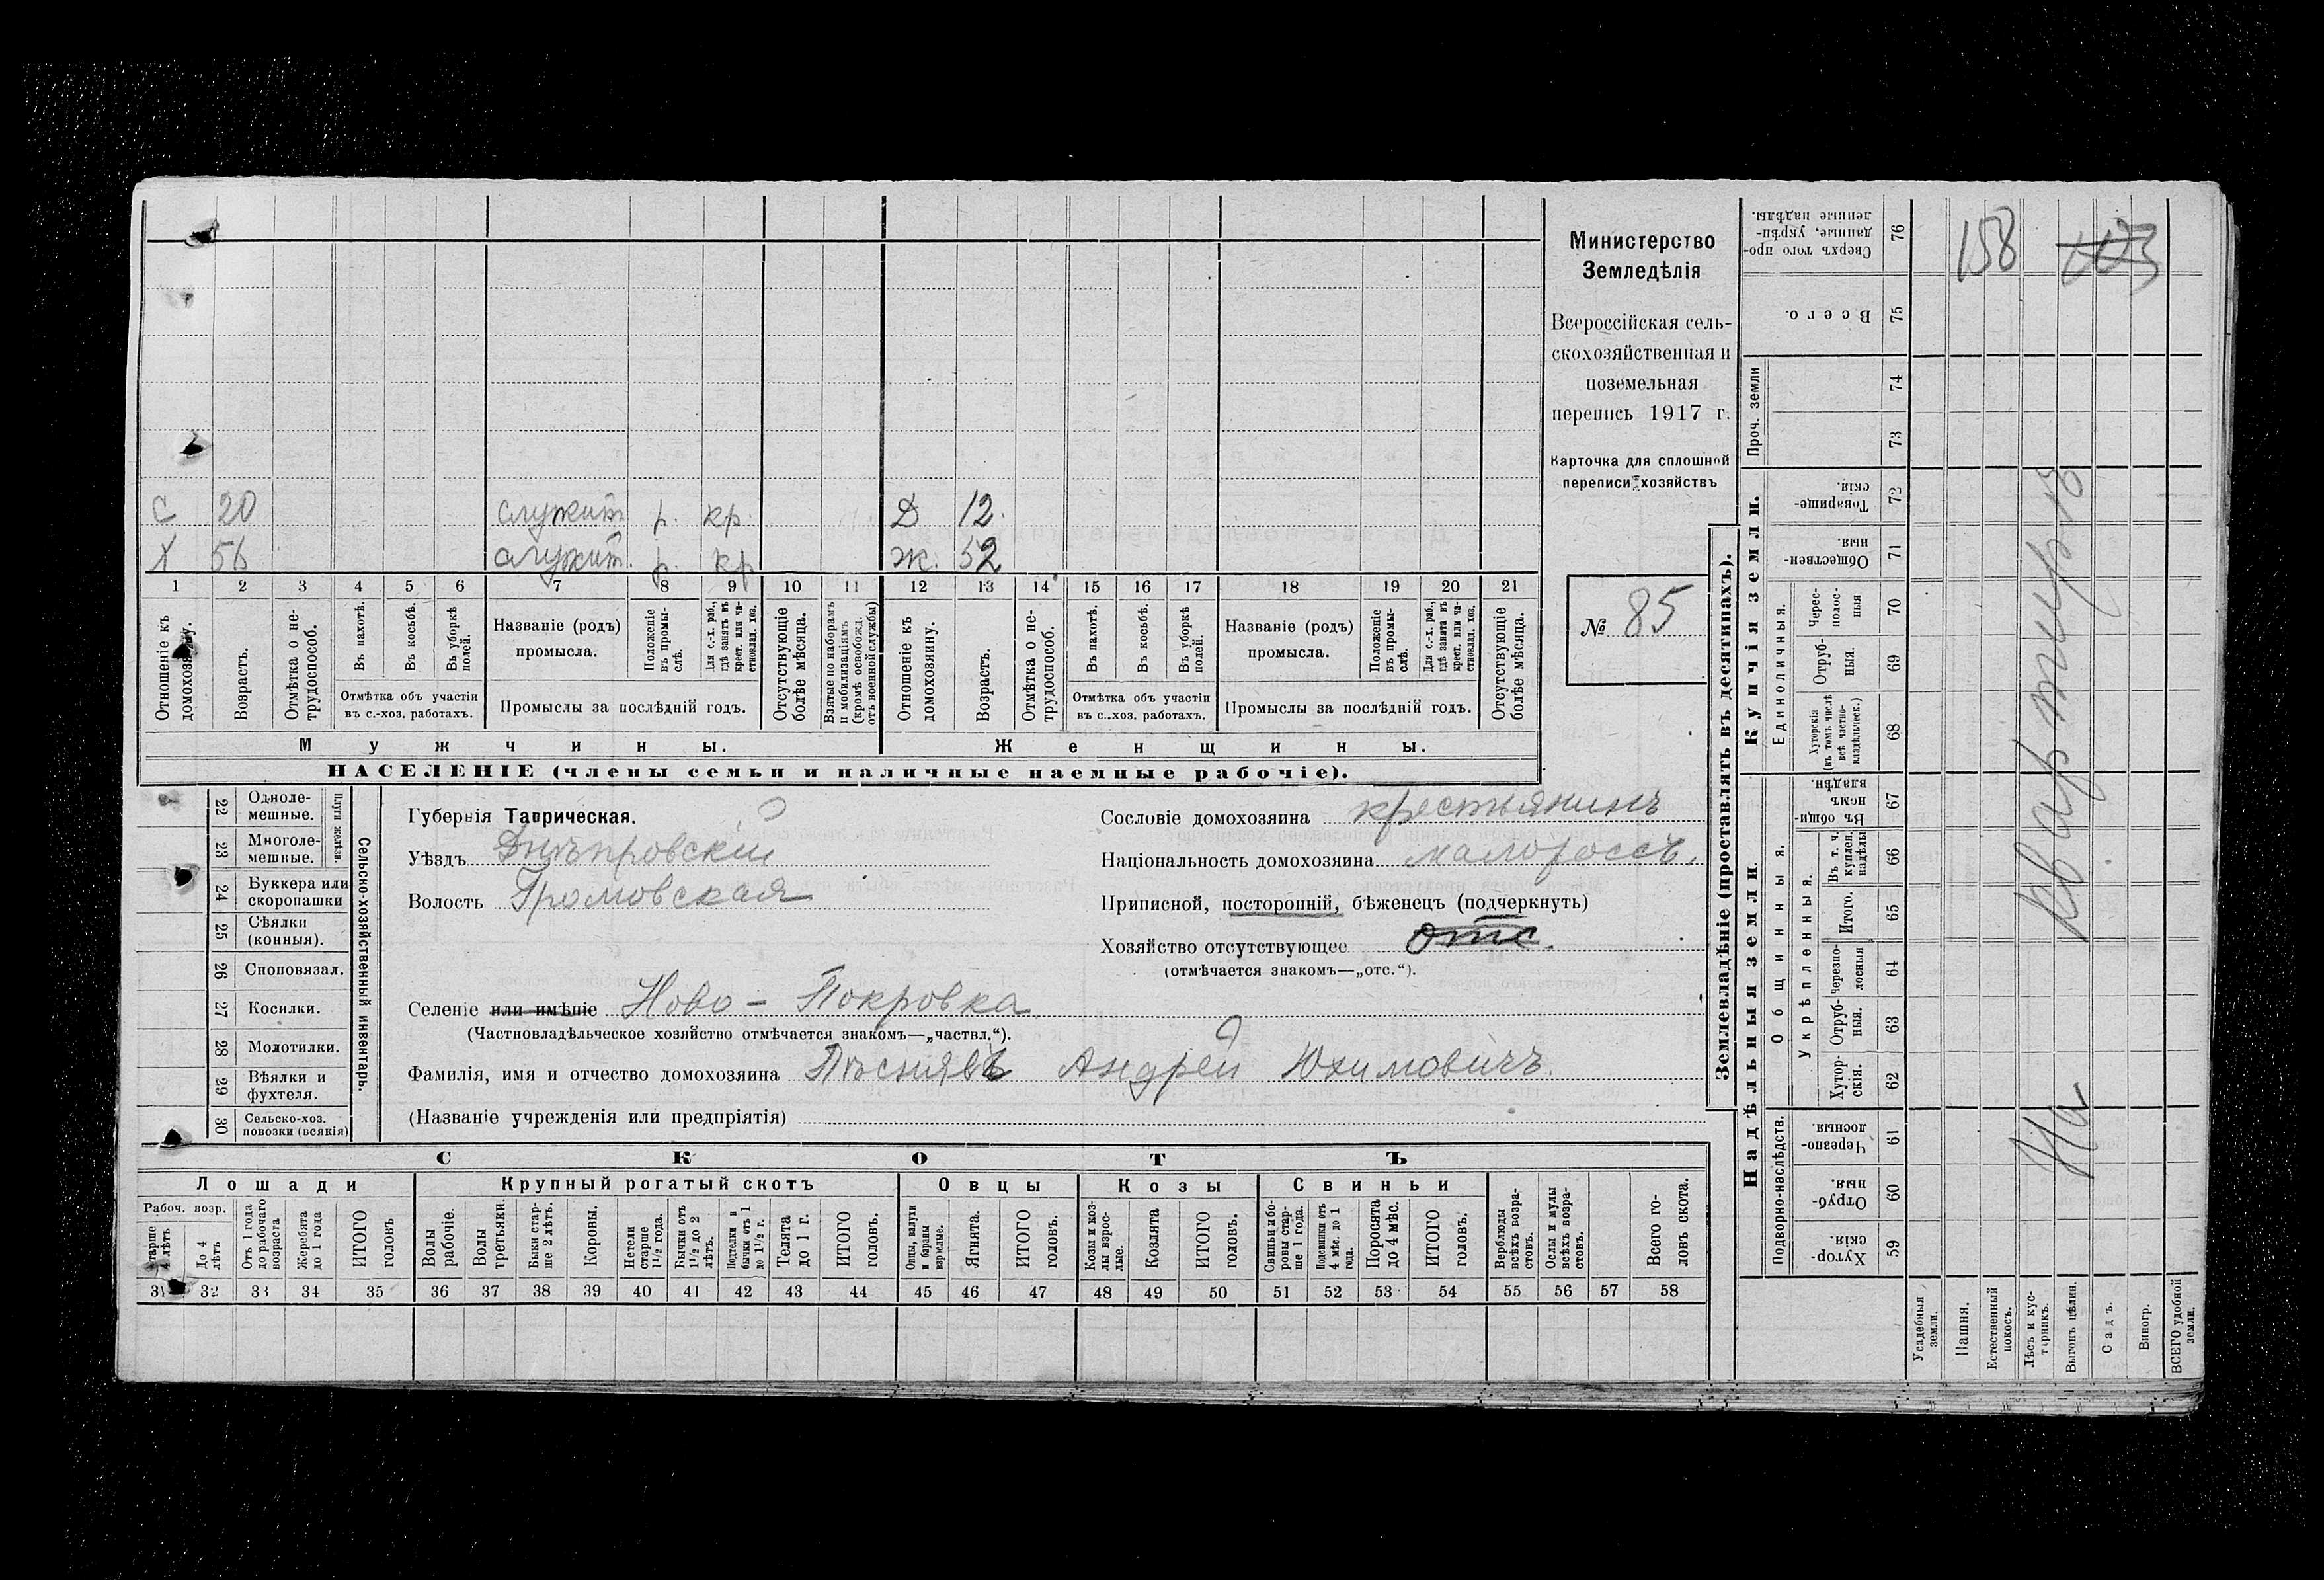 Министерство
Земледѣлія
Всероссійская сель-
скохозяйственная и
поземельная
перепись 1917 г.
Карточка для сплошной
переписи хозяйствъ
№ 85
С 20 служит. р. кр. Д 12.
Х 56 служит. р. кр Ж. 52
1 2 3 4 5 6 7 8 9 10 11 12 13 14 15 16 17 18 19 20 21
Отношеніе къ домохозяину.
Возрастъ.
Отмѣтка о не-
трудоспособ.
Въ пахотѣ.
Въ косьбѣ.
Въ уборкѣ
полей.
Отмѣтка объ участіи
въ с.-хоз. работахъ.
Названіе (родъ)
промысла.
Положеніе
въ промы-
слѣ.
Для с.-х. раб.,
гдѣ занятъ въ
крест. или ча-
стновлад. хоз.
Промыслы за послѣдній годъ.
Отсутствующіе
болѣе мѣсяца.
Взятые по наборамъ
и мобилизаціямъ
(кромѣ освобожд.
отъ военной службы)
Отношеніе къ
домохозяину.
Возрастъ.
Отмѣтка о не-
трудоспособ.
Въ пахотѣ.
Въ косьбѣ.
Въ уборкѣ
полей.
Отмѣтка объ участіи
въ с.-хоз. работахъ.
Названіе (родъ)
промысла.
Положеніе
въ промы-
слѣ.
Для с.-х. раб.,
гдѣ занята въ
крест. или ча-
стновлад. хоз.
Промыслы за послѣдній годъ.
Отсутствующіе
болѣе мѣсяца.
Мужчины.
Женщины.
НАСЕЛЕНІЕ (члены семьи и наличные наемные рабочіе).
22 Одноле-
мешные.
23 Многоле-
мешные.
Плуги желѣзн.
24 Буккера или
скоропашки
25 Сѣялки
(конныя).
26 Сноповязал.
27 Косилки.
28 Молотилки.
29 Вѣялки и
фухтеля.
30 Сельско-хоз.
повозки (всякія)
Сельско-хозяйственный инвентарь.
Губернія Таврическая.
Уѣздъ Днѣпровскій
Волость Громовская
Селеніе или имѣніе Ново-Покровка
(Частновладѣльческое хозяйство отмѣчается знакомъ—„частвл.“).
Фамилія, имя и отчество домохозяина Пѣснявъ Андрей Юхимовичъ.
(Названіе учрежденія или предпріятія)
Сословіе домохозяина крестьянинъ
Національность домохозяина малороссъ.
Приписной, посторонній, бѣженецъ (подчеркнуть)
Хозяйство отсутствующее отс.
(отмѣчается знакомъ—„отс.“).
СКОТЪ
Лошади
Рабоч. возр.
Старше
4 лѣтъ
До 4
лѣтъ
Отъ 1 года
до рабочаго
возраста
Жеребята
до 1 года
ИТОГО
головъ
Крупный рогатый скотъ
Волы
рабочіе.
Волы
третьяки.
Быки стар-
ше 2 лѣтъ.
Коровы.
Нетели
старше
1½ года.
Бычки отъ
1½ до 2
лѣтъ.
Подтелки и
бычки отъ 1
до 1½ г.
Телята
до 1 г.
ИТОГО
головъ.
Овцы
Овцы, валухи
и бараны
взрослые.
Ягнята.
ИТОГО
головъ.
Козы
Козы и коз-
лы взрос-
лые.
Козлята
ИТОГО
головъ.
Свиньи
Свиньи и бо-
ровы стар-
ше 1 года.
Подсвинки отъ
4 мѣс. до 1
года.
Поросята
до 4 мѣс.
ИТОГО
головъ.
Верблюды
всѣхъ возра-
стовъ.
Ослы и мулы
всѣхъ возра-
стовъ.
Всего го-
ловъ скота.
31 32 33 34 35 36 37 38 39 40 41 42 43 44 45 46 47 48 49 50 51 52 53 54 55 56 57 58
Землевладѣніе (проставлять въ десятинахъ).
Надѣльныя земли.
Подворно-наслѣдств.
Хутор-
скія.
59
Отруб-
ныя.
60
Черезпо-
лосныя
61
Общинныя.
Укрѣпленныя.
Хутор-
скія.
62
Отруб-
ныя.
63
Черезпо-
лосныя
64
Итого.
65
Въ т. ч.
куплен.
надѣлы
66
Въ общи-
номъ
владѣн.
67
Купчія земли.
Единоличныя.
Хуторскія
(въ томъ числѣ
всѣ частно-
владѣльческ.)
68
Отруб-
ныя.
69
Черес-
полос-
ныя
70
Обществен-
ныя.
71
Товарище-
скія.
72
Проч. земли
73
74
Всего.
75
Сверхъ того про-
данные, укрѣп-
ленные надѣлы.
76
Усадебныя
земли.
Пашня.
Естественный
покосъ.
Лѣсъ и кус-
тарникъ.
Выгонъ цѣлин.
Садъ.
Виногр.
ВСЕГО удобной
земли.
158
На квартирѣ